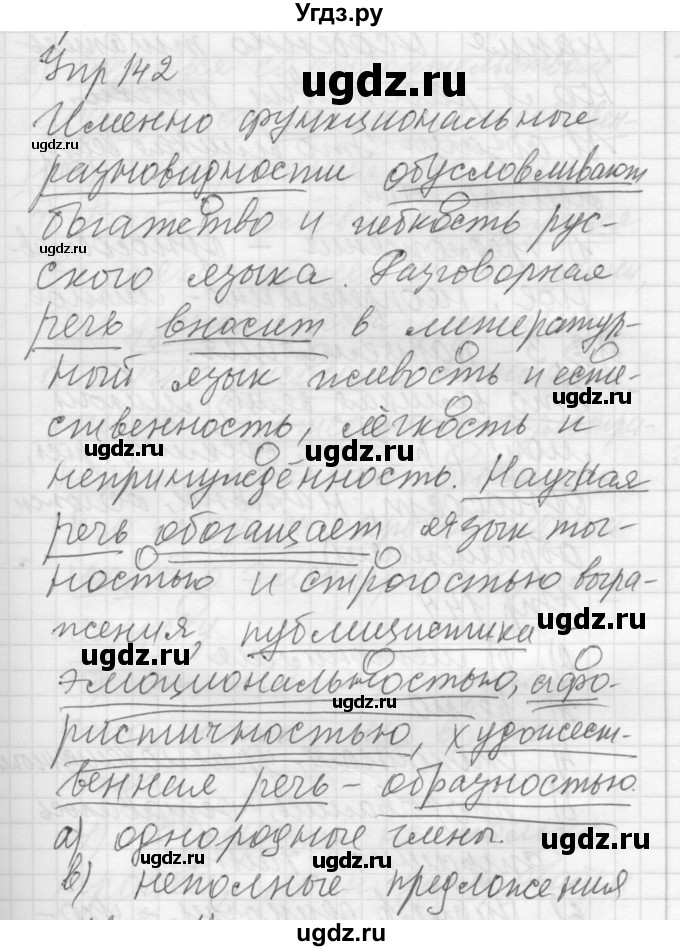 Угдз.ру
Упр 142
Именно функциональные
разновидности обусловливают
богатство и гибкость рус-
ского языка. Разговорная
речь вносит в литератур-
ный язык живость и есте-
ственность, лёгкость и
непринуждённость. Научная
речь обогащает язык
ностью и строгостью выра-
жения, публицистика
эмоциональностью, афо-
ристичностью, художест-
венная речь – образностью.
а) однородные члены.
в) неполные предложения
ugdz.ru
ugdz.ru
ugdz.ru
ugdz.ru
ugdz.ru
ugdz.ru
ugdz.ru
ugdz.ru
ugdz.ru
ugdz.ru
ugdz.ru
ugdz.ru
ugdz.ru
ugdz.ru